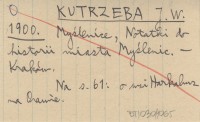 KUTRZEBA J. W.
1900. Myślenice, Notatki do
historii miasta Myślenic. –
Kraków.
Na s. 61: o wsi Harkabuz
na Orawie.